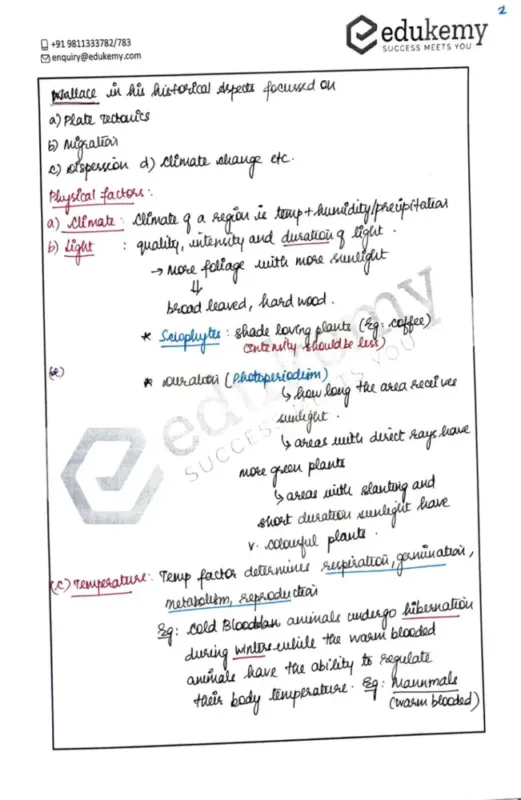 2
+91 9811333782/783
enquiry@edukemy.com
edukemy
SUCCESS MEETS YOU
Wallace in his historical aspects focussed on
a) Plate Tectonics
b) Migration
c) Dispersion d) Climate change etc.
Physical factors:
a) Climate: Climate of a region ie temp+humidity/precipitation
b) Light : quality, intensity and duration of light.
→ More foliage with more sunlight
⇓
broad leaved, hard wood.
* Sciophytes: shade loving plants (Eg: coffee)
(intensity should be less)
* Duration (Photoperiodism)
↳ how long the area receives
sunlight.
↳ areas with direct rays have
more green plants
↳ areas with slanting and
short duration sunlight have
v. colourful plants.
(c) Temperature: Temp factor determines respiration, germination,
metabolism, reproduction
Eg: Cold Blooded animals undergo hibernation
during winters while the warm blooded
animals have the ability to regulate
their body temperature. Eg: Mammals
(warm blooded)
edukemy
SUCCESS MEETS YOU